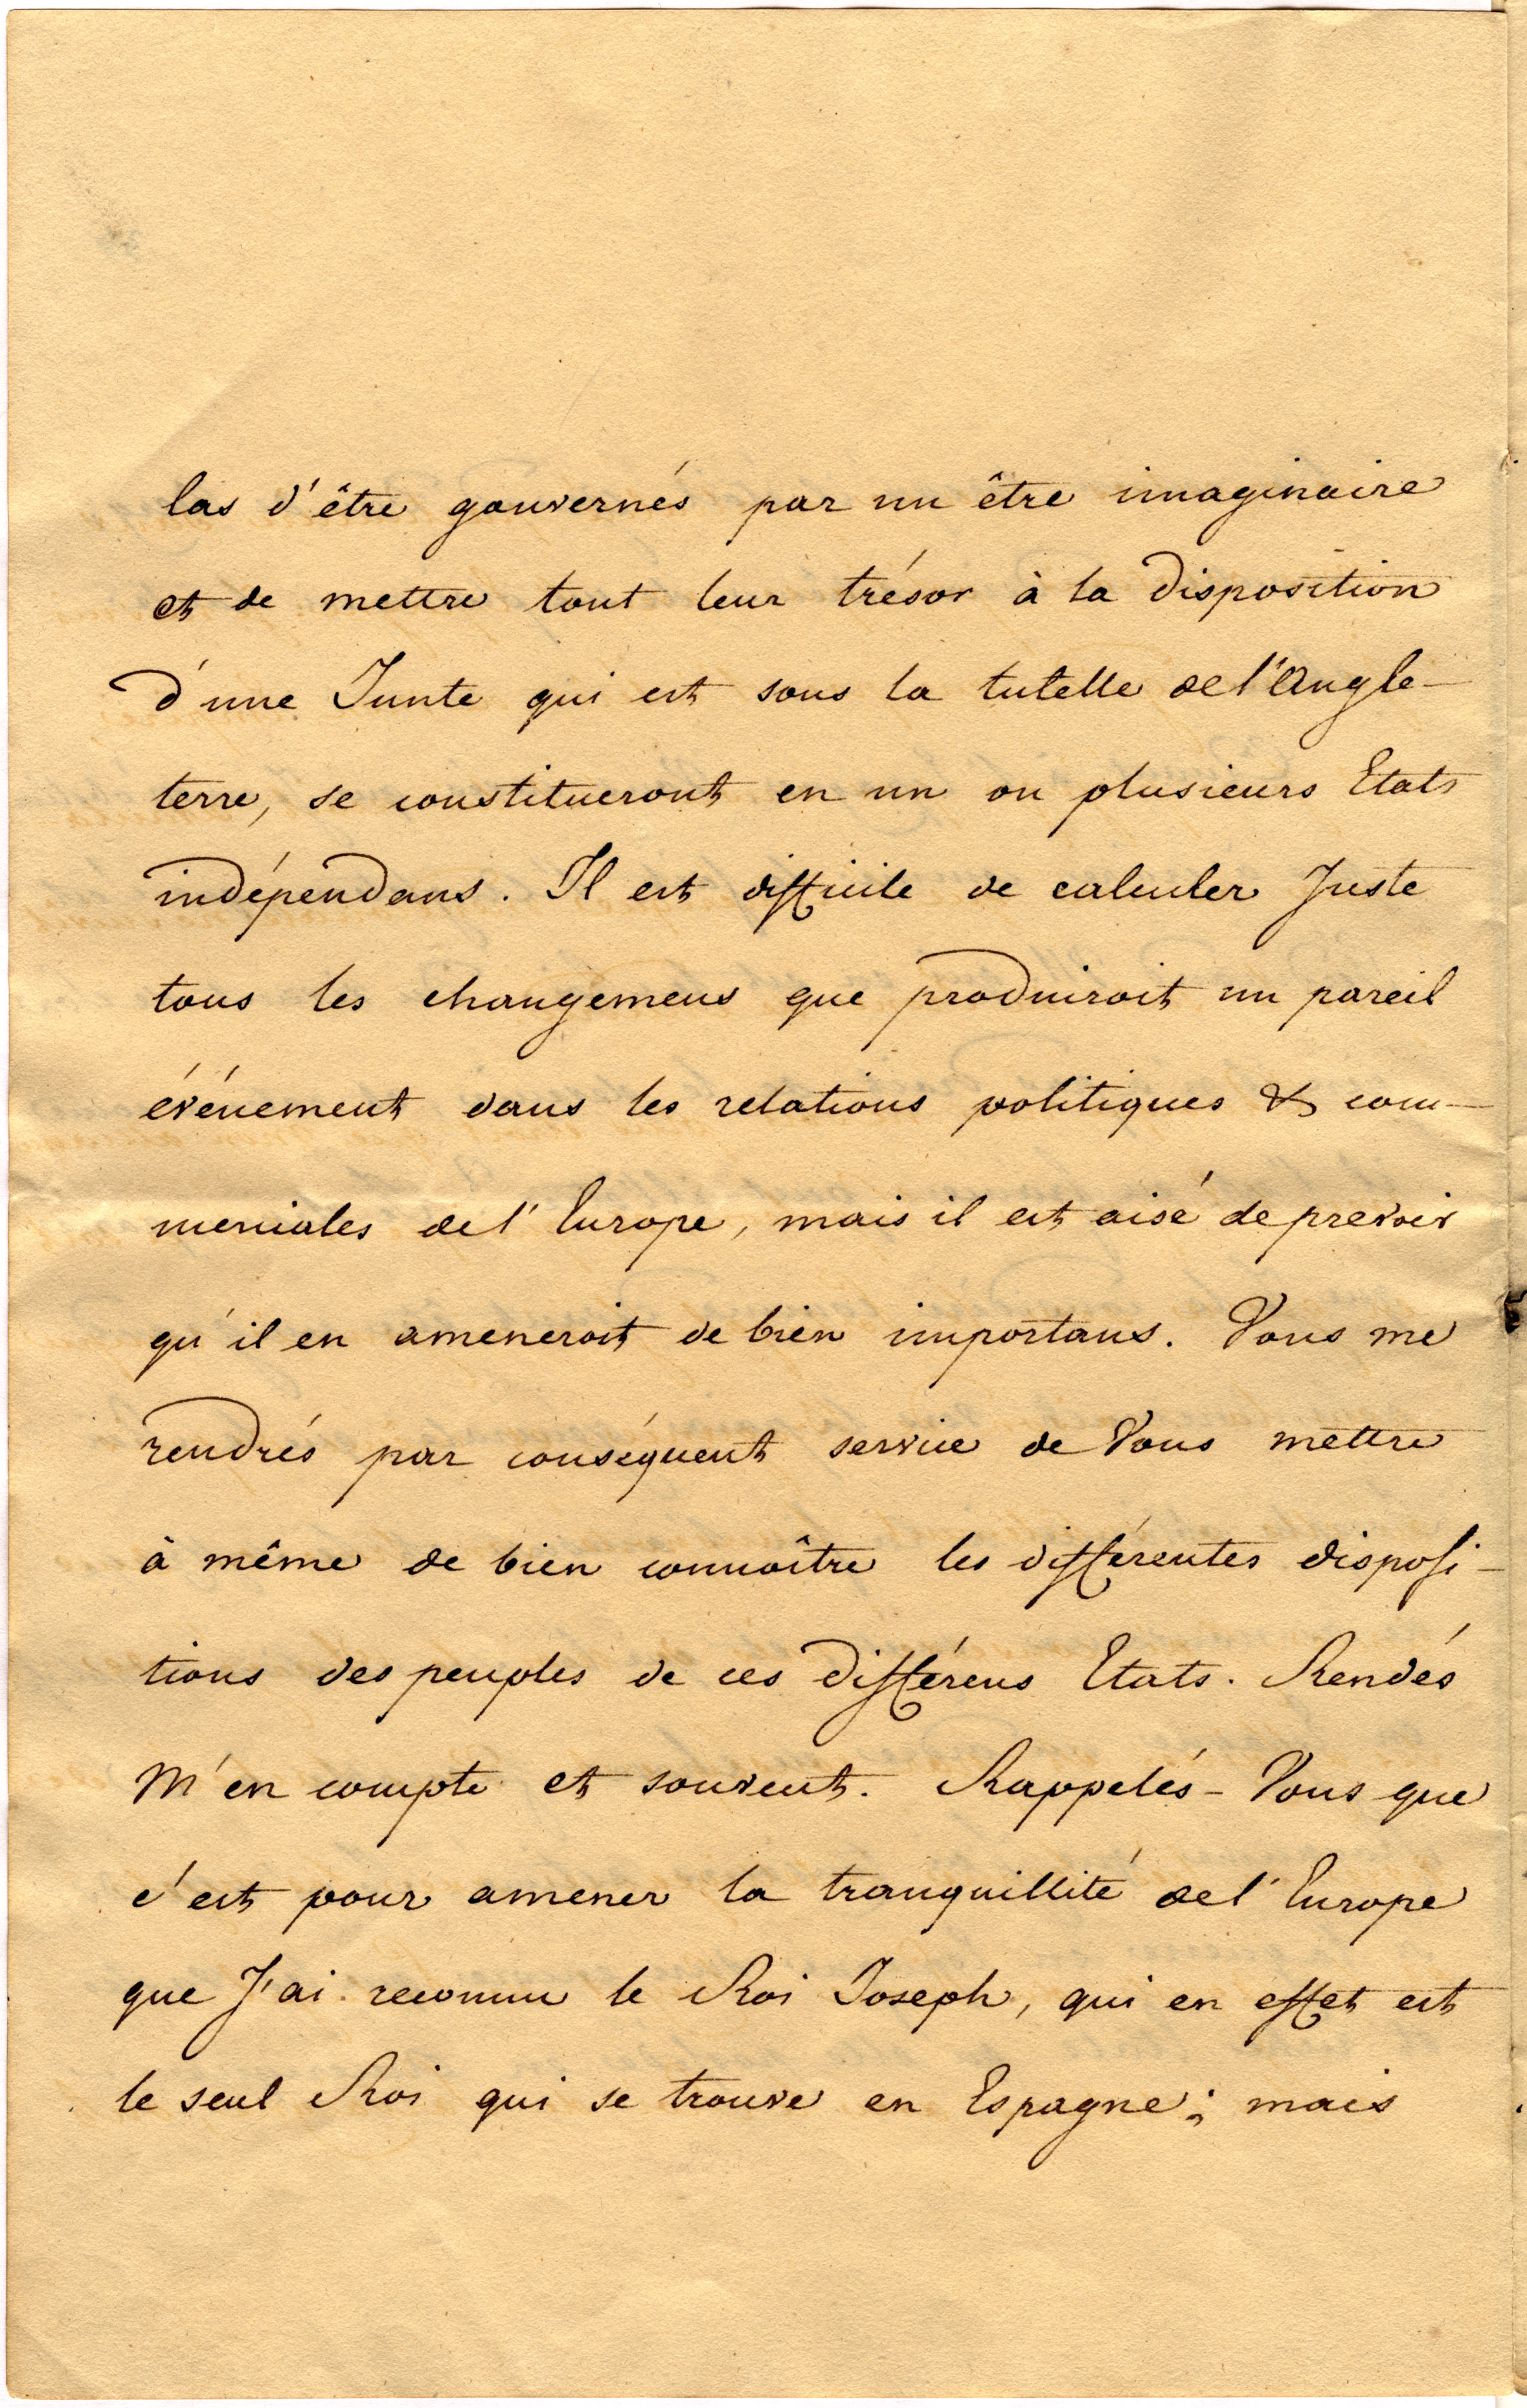 las d'être gouvernés par un être imaginaire
et de mettre tout leur trésor à la disposition
d'une Junte qui est sous la tutelle de l'Angle-
terre, se constitueront en un ou plusieurs Etats
indépendans. Il est difficile de calculer juste
tous les changemens que produiroit un pareil
événement dans les relations politiques & com-
merciales de l'Europe, mais il est aisé de prevoir
qu'il en ameneroit de bien importans. Vous me
rendrés par conséquent service de Vous mettre
à même de bien connoître les différentes disposi-
tions des peuples de ces différens Etats. Rendés
M'en compte et souvent. Rappelés-Vous que
c'est pour amener la tranquillité de l'Europe
que J'ai reconnu le Roi Joseph, qui en effet est
le seul Roi qui se trouve en Espagne; mais